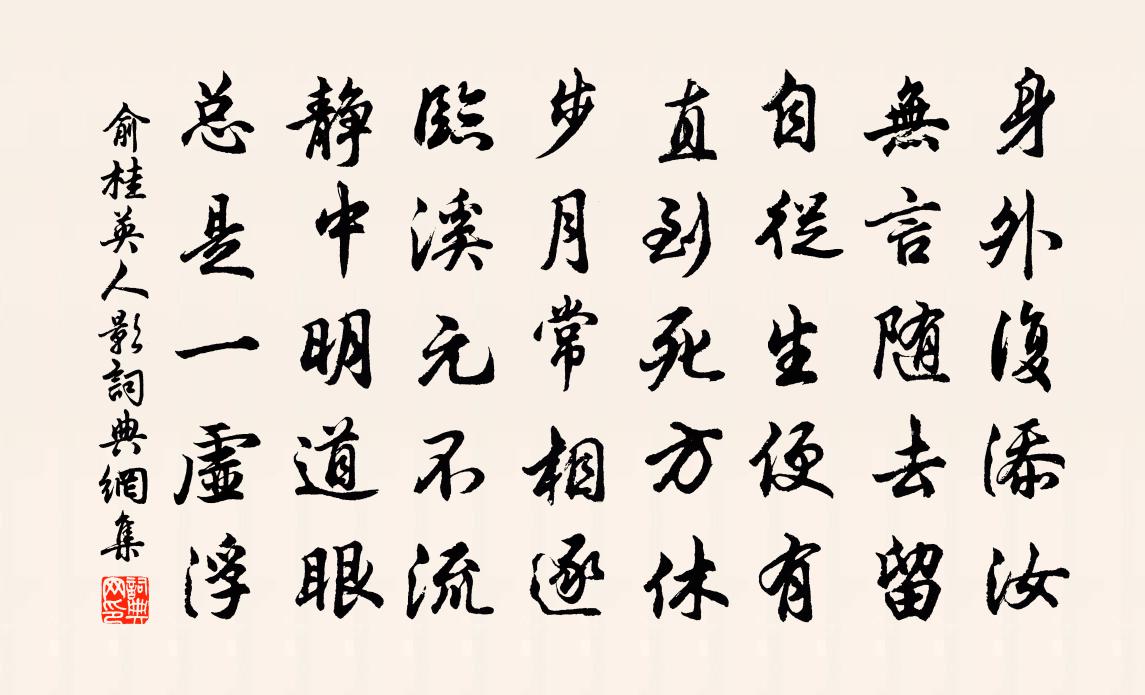 身外復添汝
無言随去留
自從生便有
直到死方休
步月常相逐
臨溪元不流
静中明道眼
总是一虛浮
俞桂英人影詞典網集
詞典网印